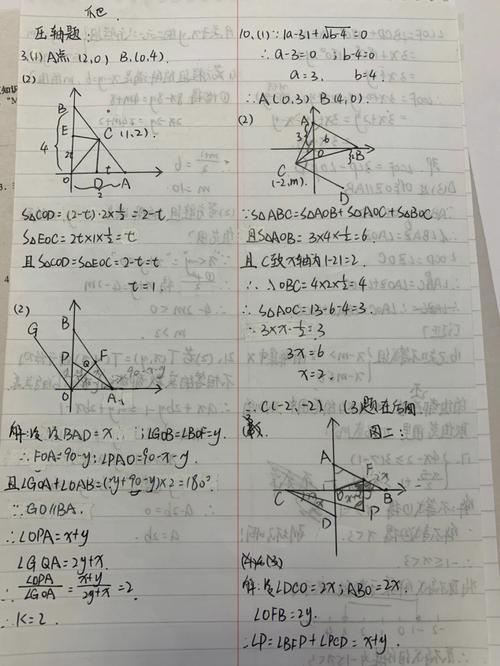 压轴题:
3.(1) A点 (2,0) B.(0.4).
(2)
B
E
C (1,2).
4
2t
t
O
D
A
2
S△COD=(2-t)·2×½=2-t
S△EOC=2t×1×½=t
且S△COD=S△EOC=2-t=t
t=1.
(2)
G
B
P
F
Q
O
A
解:设∠BAD=x. ;∠GOB=∠BOF=y.
∴FOA=90-y;∠PAO=90-x-y.
∴GO∥BA.
∴∠OPA=x+y
∠GQA=2y+x.
∴K=2.
10.(1):|a-3|+√b-4=0
∴a-3=0 ;b-4=0
a=3. b=4
∴A(0.3) B(4,0).
(2)
A
3
6
B
O
C
(-2,m).
D
∵S△ABC=S△AOB+S△AOC+S△BOC
且S△AOB=3×4×½=6.
且C到y轴为|-2|=2.
∴S△AOC=13-6-4=3.
3x=6
∴C(-2,-2)
(3)题在后面
图二:
A
F
2x
C
B
D
P
解:设∠DCO=2x;ABO=2x.
∠OFB=2y.
∴∠P=∠BFP+∠PCD=x+y.